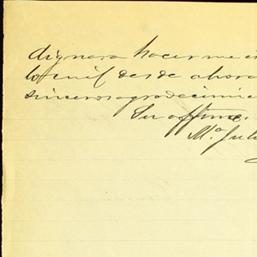 dignara hacerme e
lo cual desde ahora
sinceros agradecimie
Su affmo.
Mª Jul